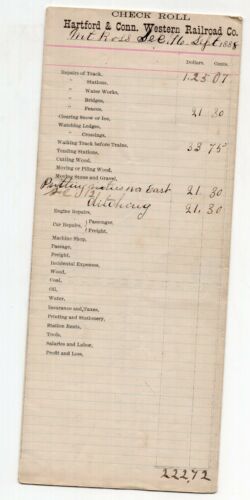 CHECK ROLL
Hartford & Conn. Western Railroad Co.
Mt Ross Sec. 16. Sept 1888
Dollars. Cents.
Repairs of Track, 125 07
" Stations,
" Water Works,
" Bridges,
" Fences, 21 30
Clearing Snow or Ice,
Watching Ledges,
" Crossings,
Walking Track before Trains, 33 75
Tending Stations,
Cutting Wood,
Moving or Piling Wood,
Moving Stone and Gravel,
East 21 30
Ditching 21 30
Engine Repairs,
Car Repairs, { Passenger,
Freight,
Machine Shop,
Passage,
Freight,
Incidental Expenses,
Wood,
Coal,
Oil,
Water,
Insurance and Taxes,
Printing and Stationery,
Station Rents,
Tools,
Salaries and Labor,
Profit and Loss,
222,72